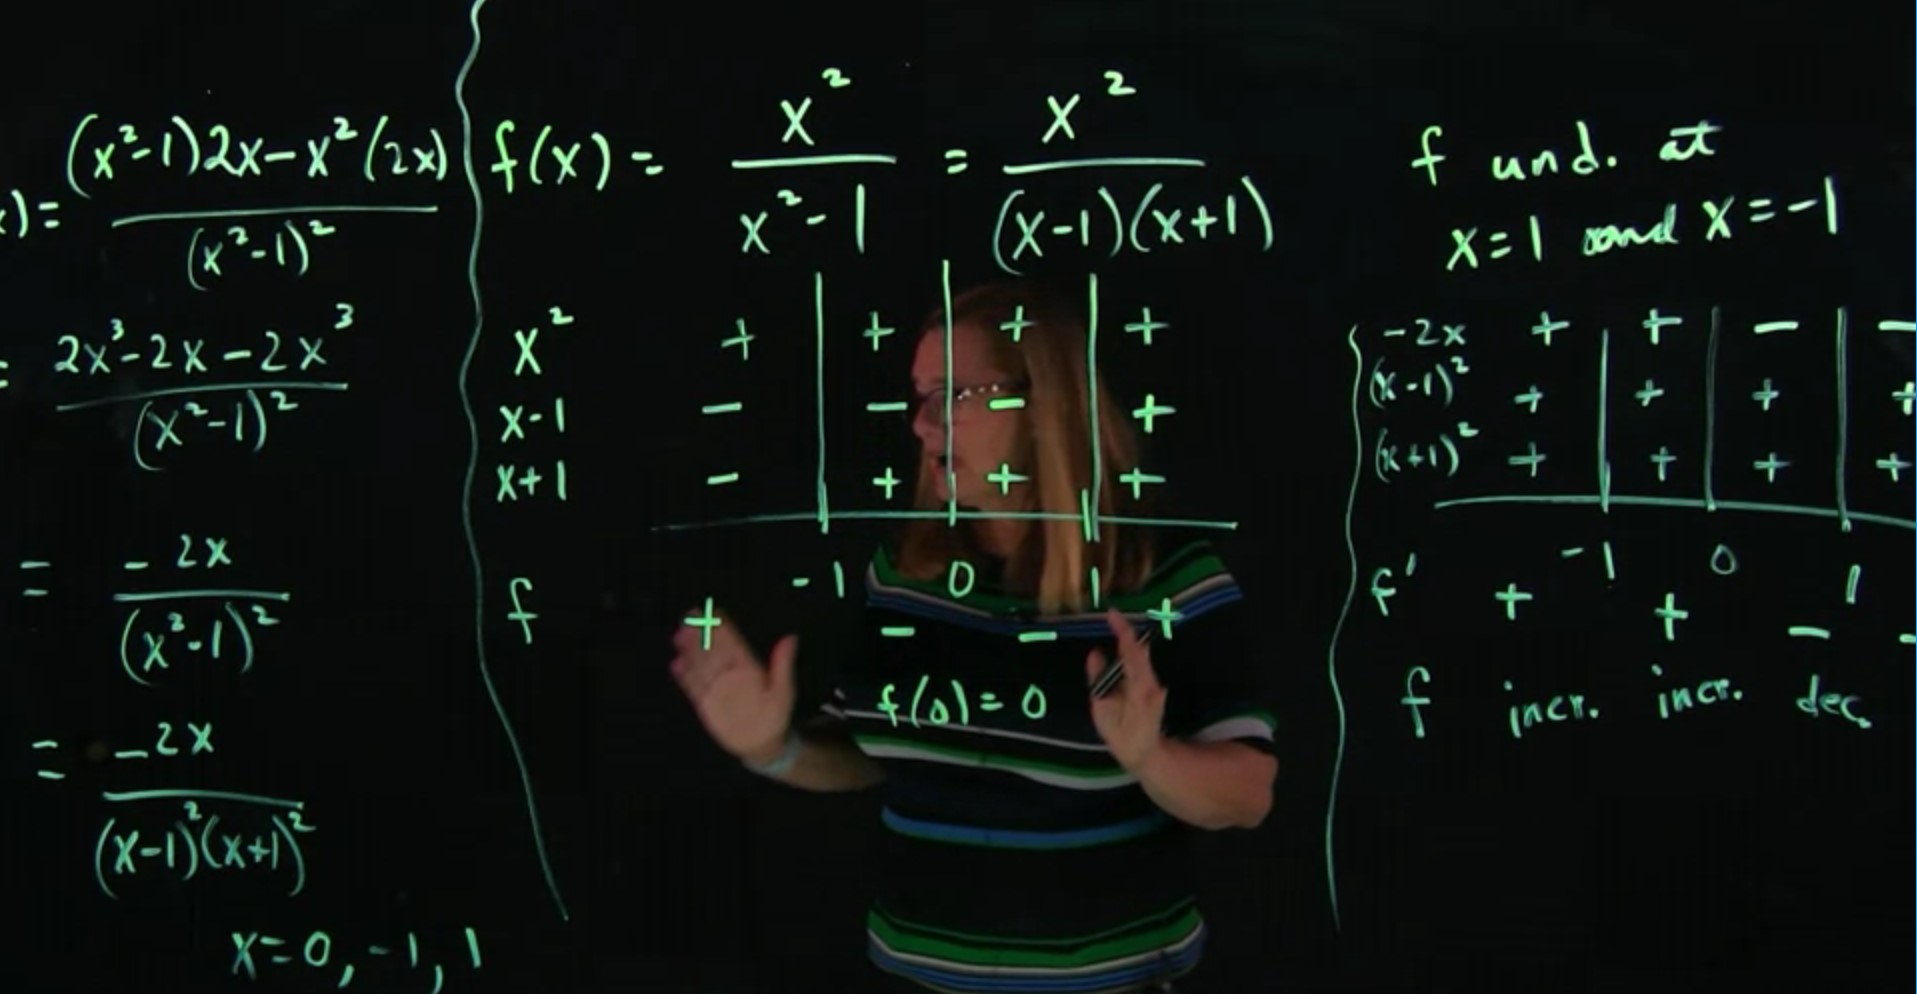 x)= (x²-1)2x-x²(2x)
(x²-1)²
= 2x³-2x-2x³
(x²-1)²
= -2x
(x²-1)²
= -2x
(x-1)²(x+1)²
x=0,-1,1
f(x) = x² = x²
x²-1 (x-1)(x+1)
x² + + + +
x-1 - - - +
x+1 - + + +
-1 0 1
f + - - +
f(0)=0
f und. at
x=1 and x=-1
-2x + + - -
(x-1)² + + + +
(x+1)² + + + +
-1 0 1
f' + + - -
f incr. incr. dec.